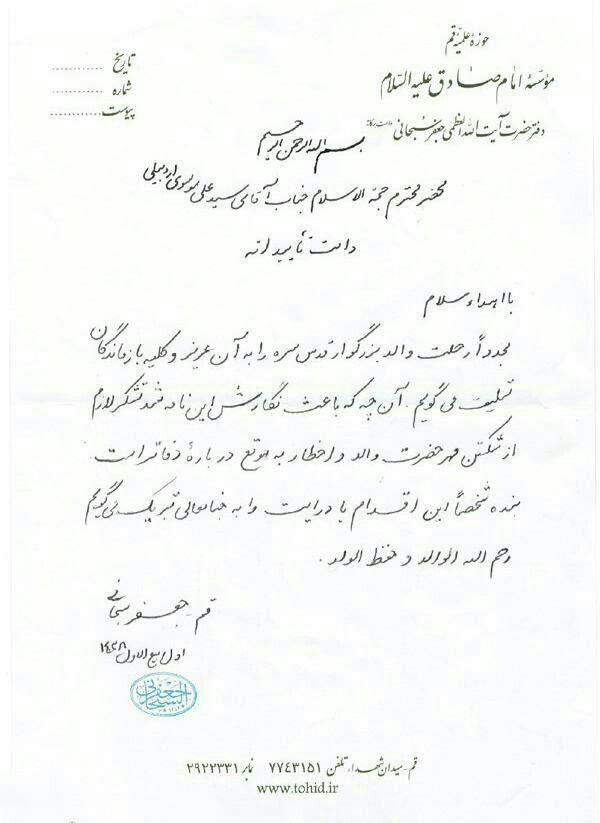 حوزهٔ علمیّه قم
مؤسّسهٔ امام صادق علیه السّلام
دفتر حضرت آیت الله العظمی جعفر سبحانی دامت برکاته
تاریخ ..............
شماره ..............
پیوست..............
بسم الله الرحمن الرحیم
محضر محترم حجة الاسلام جناب آقای سید علی موسوی اردبیلی
دامت تأییداته
با اهداء سلام
مجدداً رحلت والد بزرگوار قدس سره را به آن عزیز و کلیه بازماندگان
تسلیت می گویم. آن چه که باعث نگارش این نامه شد تشکر لازم
از شکستن مهر حضرت والد و اخطار به موقع درباره دفاتر است
بنده شخصاً این اقدام با درایت را به جنابعالی تبریک می گویم
رحم الله الوالد و حفظ الولد.
قم - جعفر سبحانی
اول ربیع الاول ۱۴۳۸
جعفر السبحانی
قم - میدان شهدا، تلفن ۷۷۴۳۱۵۱ نمابر ۲۹۲۲۳۳۱
www.tohid.ir